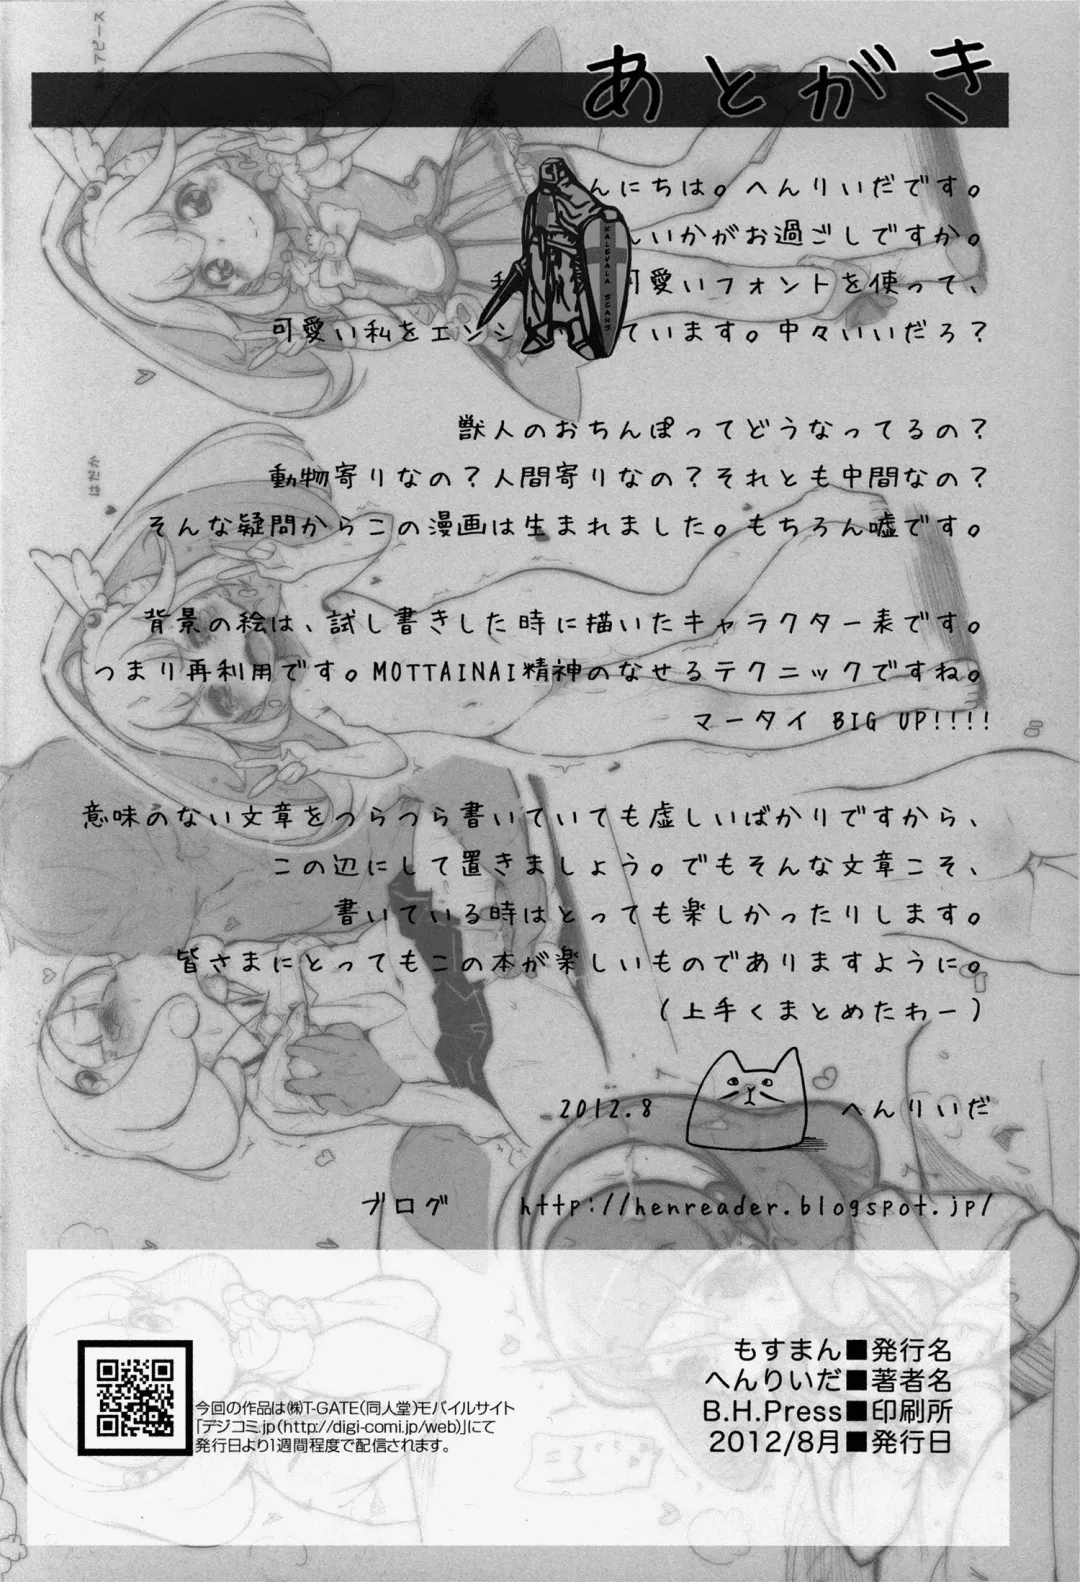 あとがき
んにちは。へんりいだです。
いかがお過ごしですか。
可愛いフォントを使って、
可愛い私をエンシ
ています。中々いいだろ?
KALEVALA SCANS
獣人のおちんぽってどうなってるの?
動物寄りなの?人間寄りなの?それとも中間なの?
そんな疑問からこの漫画は生まれました。もちろん嘘です。
背景の絵は、試し書きした時に描いたキャラクター表です。
つまり再利用です。MOTTAINAI精神のなせるテクニックですね。
マータイ BIG UP!!!!
意味のない文章をつらつら書いていても虚しいばかりですから、
この辺にして置きましょう。でもそんな文章こそ、
書いている時はとっても楽しかったりします。
皆さまにとってもこの本が楽しいものでありますように。
(上手くまとめたわー)
2012.8 へんりいだ
ブログ http://henreader.blogspot.jp/
もすまん■発行名
へんりいだ■著者名
B.H.Press■印刷所
2012/8月■発行日
今回の作品は㈱T-GATE(同人堂)モバイルサイト
「デジコミ.jp(http://digi-comi.jp/web)」にて
発行日より1週間程度で配信されます。
はだか